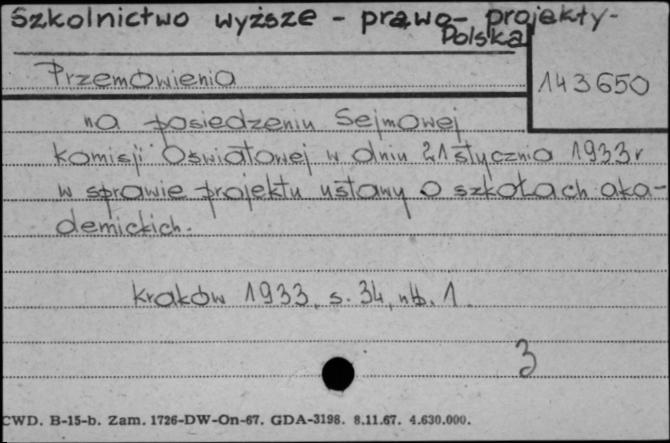 Szkolnictwo wyższe - prawo - projekty -
Polska
Przemówienia
143650
na posiedzeniu Sejmowej
Komisji Oświatowej w dniu 21 stycznia 1933 r
w sprawie projektu ustawy o szkołach aka-
demickich.
Kraków 1933, s. 34, nlb. 1.
3
CWD. B-15-b. Zam. 1726-DW-On-67. GDA-3198. 8.11.67. 4.630.000.